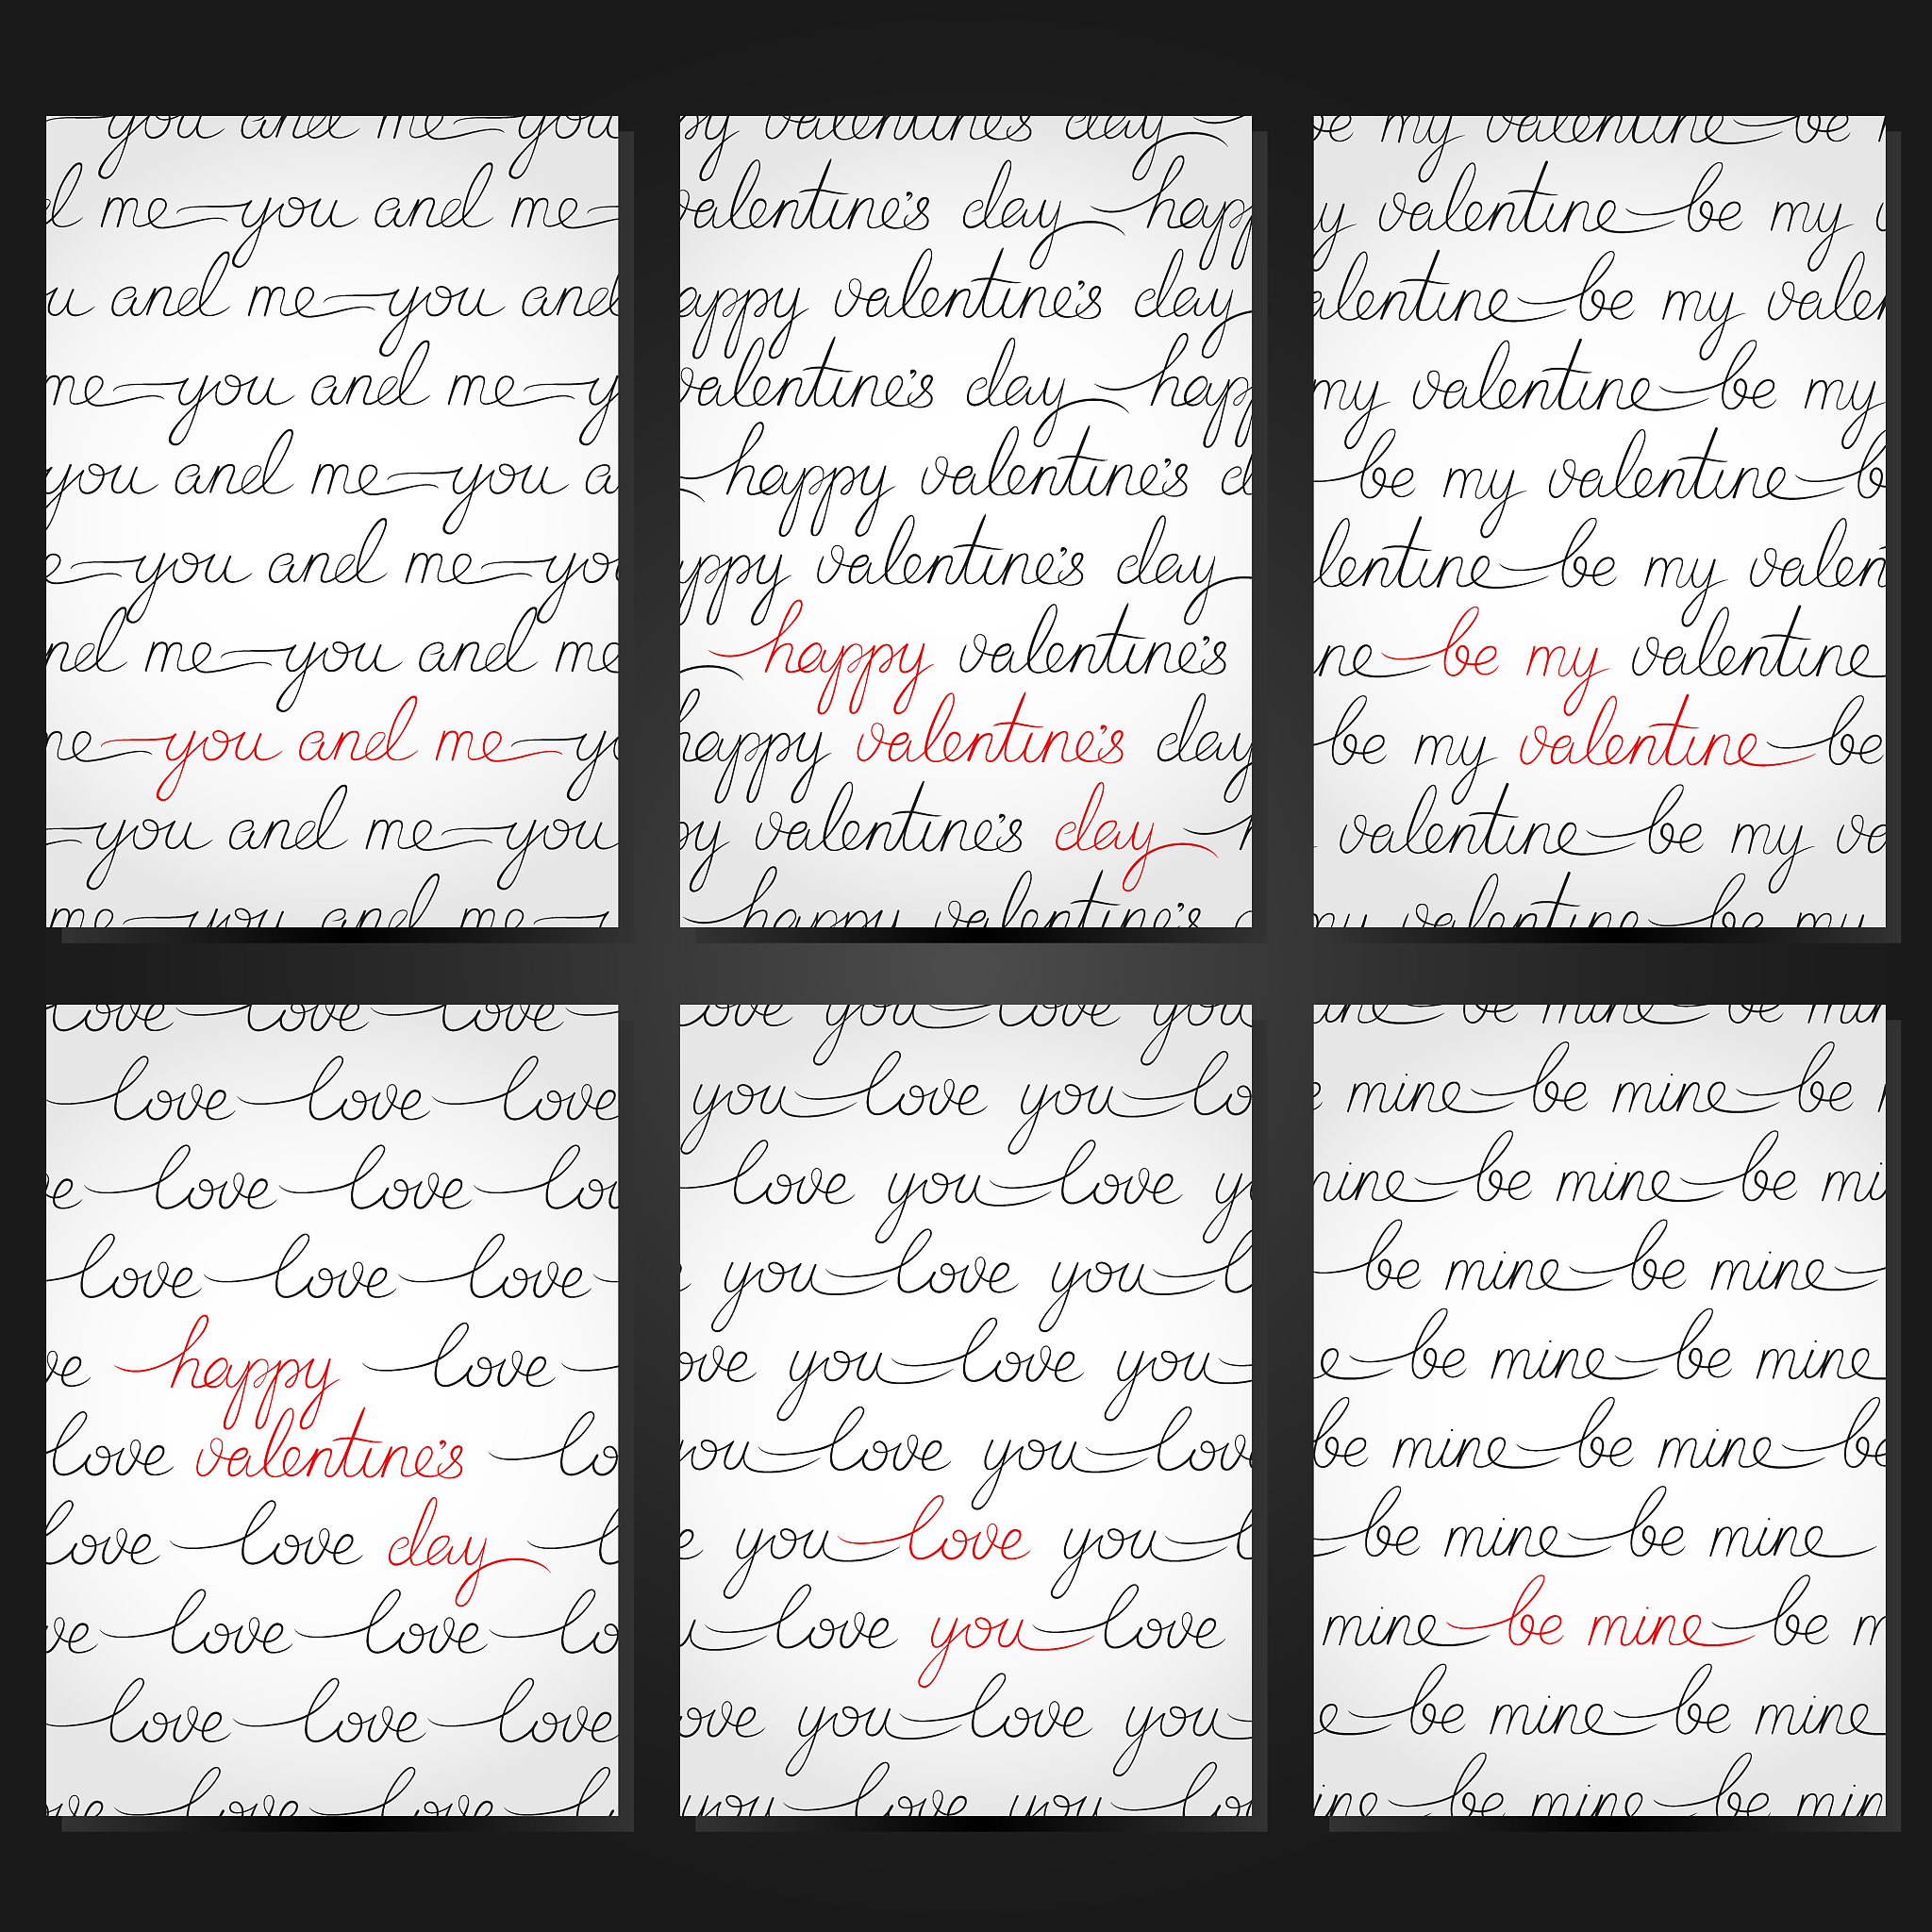 you and me you
d me you and me
u and me you and
me you and me y
you and me you a
e you and me you
nd me you and me
me you and me yo
you and me you
me you and me
py valentine's day
valentine's day happ
appy valentine's day
valentine's day happ
happy valentine's d
appy valentine's day
happy valentine's
happy valentine's day
py valentine's day h
happy valentine's d
be my valentine be
y valentine be my v
alentine be my valen
my valentine be my
be my valentine b
lentine be my valen
ne be my valentine
be my valentine be
valentine be my va
my valentine be my
love love love
love love love
e love love lov
love love love
ve happy love
love valentine's lo
love love day l
ve love love lo
love love love
ve love love l
love you love you
you love you lo
love you love y
e you love you l
ove you love you
you love you love
e you love you l
u love you love
ove you love you
you love you lo
ine be mine be min
e mine be mine be
mine be mine be mi
be mine be mine
e be mine be mine
be mine be mine be
be mine be mine
mine be mine be m
e be mine be mine
ine be mine be min